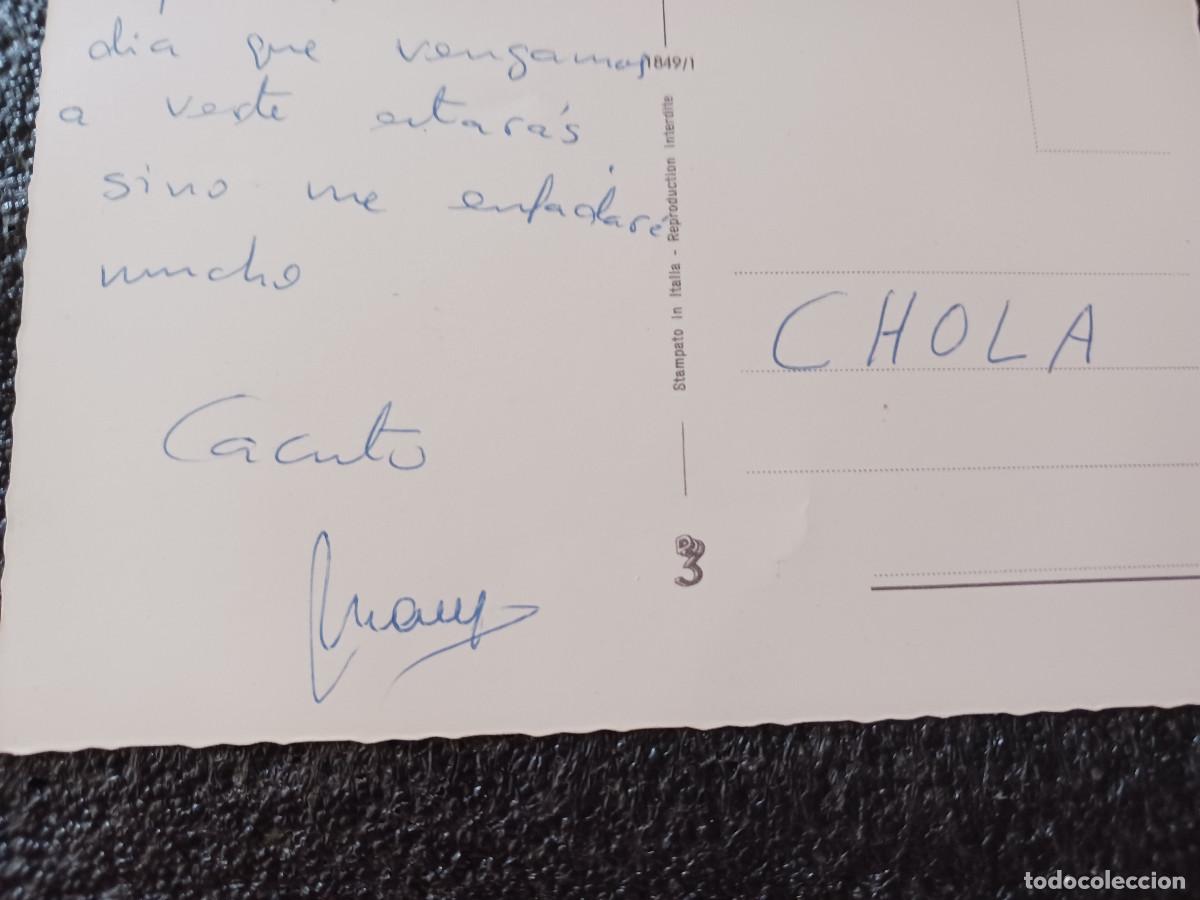 dia que vengamos
a verte estarás
sino me enfadaré
mucho
Cacuto
1849/1
Stampato in Italia - Reproduction interdite
CHOLA
todocoleccion